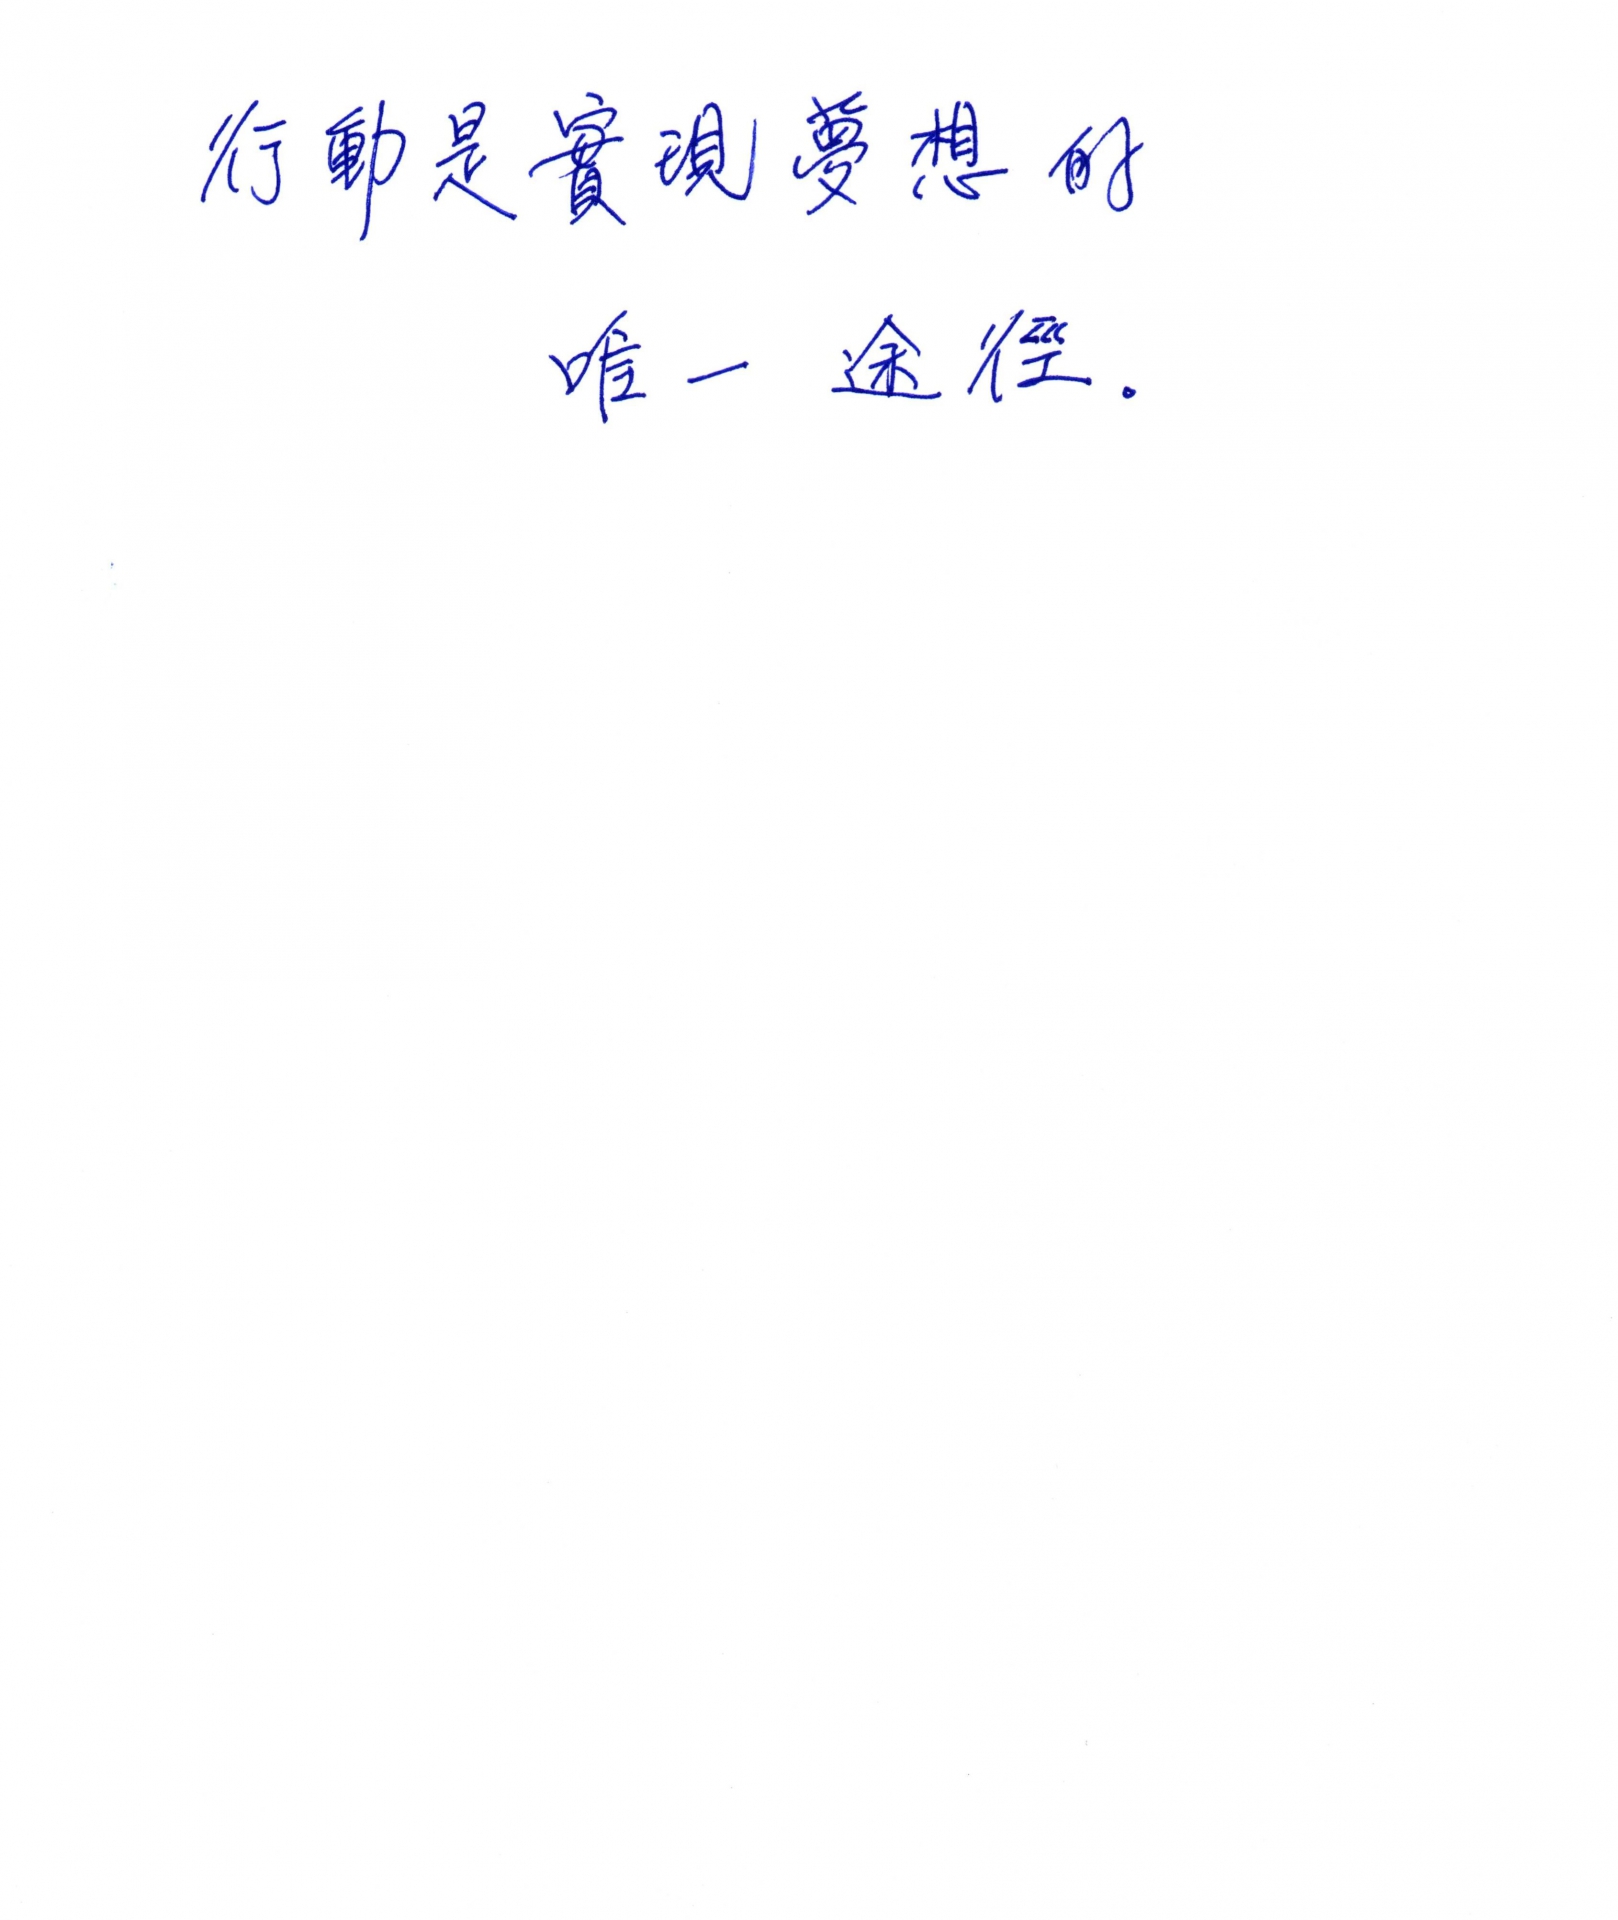 行動是實現夢想的
唯一途徑.